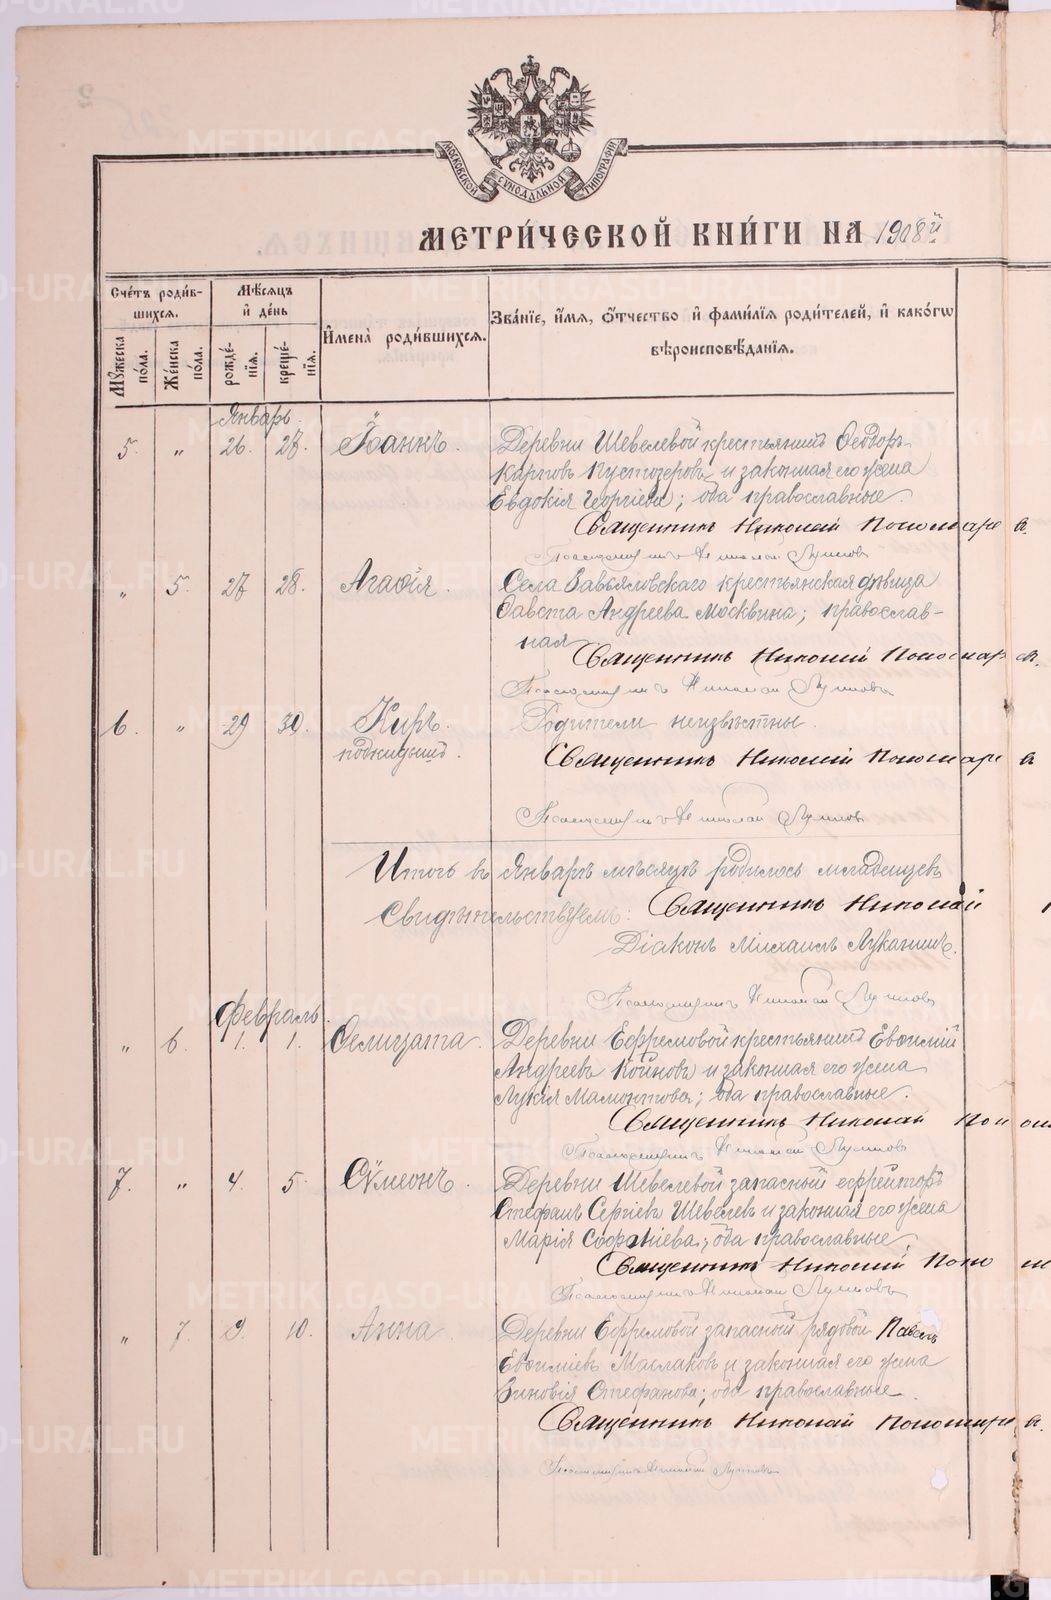 МОСКОВСКОЙ СΥНОДАЛЬНОЙ ТИПОГРАФІИ
МЕТРИ́ЧЕСКОЙ КНИ́ГИ НА 1908й
Счётъ роди́в-
шихся.
Мѣ́сяцъ
и҆ де́нь
И҆мена̀ роди́вшихся.
Зва́нїе, и҆́мя, ѻ҆́тчество и҆ фами́лїя роди́телей, и҆ како́гѡ
вѣроисповѣ́данїя.
Мꙋ́жеска
по́ла.
Же́нска
по́ла.
рожде́-
нїя.
креще́-
нїя.
Январь.
5. " 26. 27. Іоаннъ. Деревни Шевелевой крестьянинъ Ѳеодоръ
Карповъ Пустозеровъ и законная его жена
Евдокія Георгіева; оба православные.
Священникъ Николай Пономарев
Псаломщикъ Николай
" 5. 27. 28. Агаѳія. Села Завьяловскаго крестьянская дѣвица
Ѳавста Андреева Москвина; православ-
ная
Священникъ Николай Пономарев.
Псаломщикъ Николай
6. " 29 30. Киръ. Родители неизвѣстны.
подкидышъ.
Священникъ Николай Пономарев
Псаломщикъ Николай
Итого въ Январѣ мѣсяцѣ родилось младенцевъ
Свидѣтельствуемъ: Священникъ Николай
Діаконъ Михаилъ Луканинъ.
Псаломщикъ Николай
Февраль.
" 6. 1. 1. Ѳелицата. Деревни Ефремовой крестьянинъ Евѳимій
Андреевъ Койновъ и законная его жена
Лукія Мамонтова; оба православные.
Священникъ Николай Поном
Псаломщикъ Николай
7. " 4. 5. Сѵмеонъ. Деревни Шевелевой запасный ефрейторъ
Стефанъ Сергіевъ Шевелевъ и законная его жена
Марія Софоніева; оба православные.
Священникъ Николай Поном
Псаломщикъ Николай
" 7. 9. 10. Анна. Деревни Ефремовой запасный рядовой Павелъ
Евѳиміевъ Маслаковъ и законная его жена
Зиновія Стефанова; оба православные.
Священникъ Николай Пономарев.
Псаломщикъ Николай
METRIKI.GASO-URAL.RU